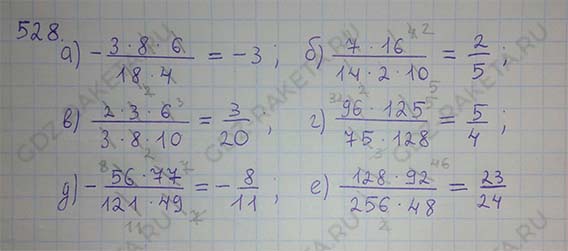 528.
а) -(3·8·6)/(18·4) = -3; б) (7·16)/(14·2·10) = 2/5;
в) (2·3·6)/(3·8·10) = 3/20; г) (96·125)/(75·128) = 5/4;
д) -(56·77)/(121·49) = -8/11; е) (128·92)/(256·48) = 23/24
GDZ-RAKETA.RU